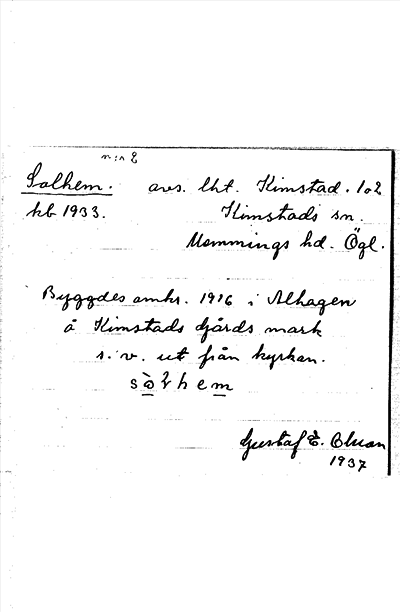 n:o 2
Solhem. avs. lht. Kimstad. 1o2
kb 1933. Kimstads sn.
Memmings hd. Ögl.
Byggdes omkr. 1916 i Alhagen
å Kimstads djärds mark
s. v. ut från kyrkan.
sòɫhem
Gustaf E.
1937